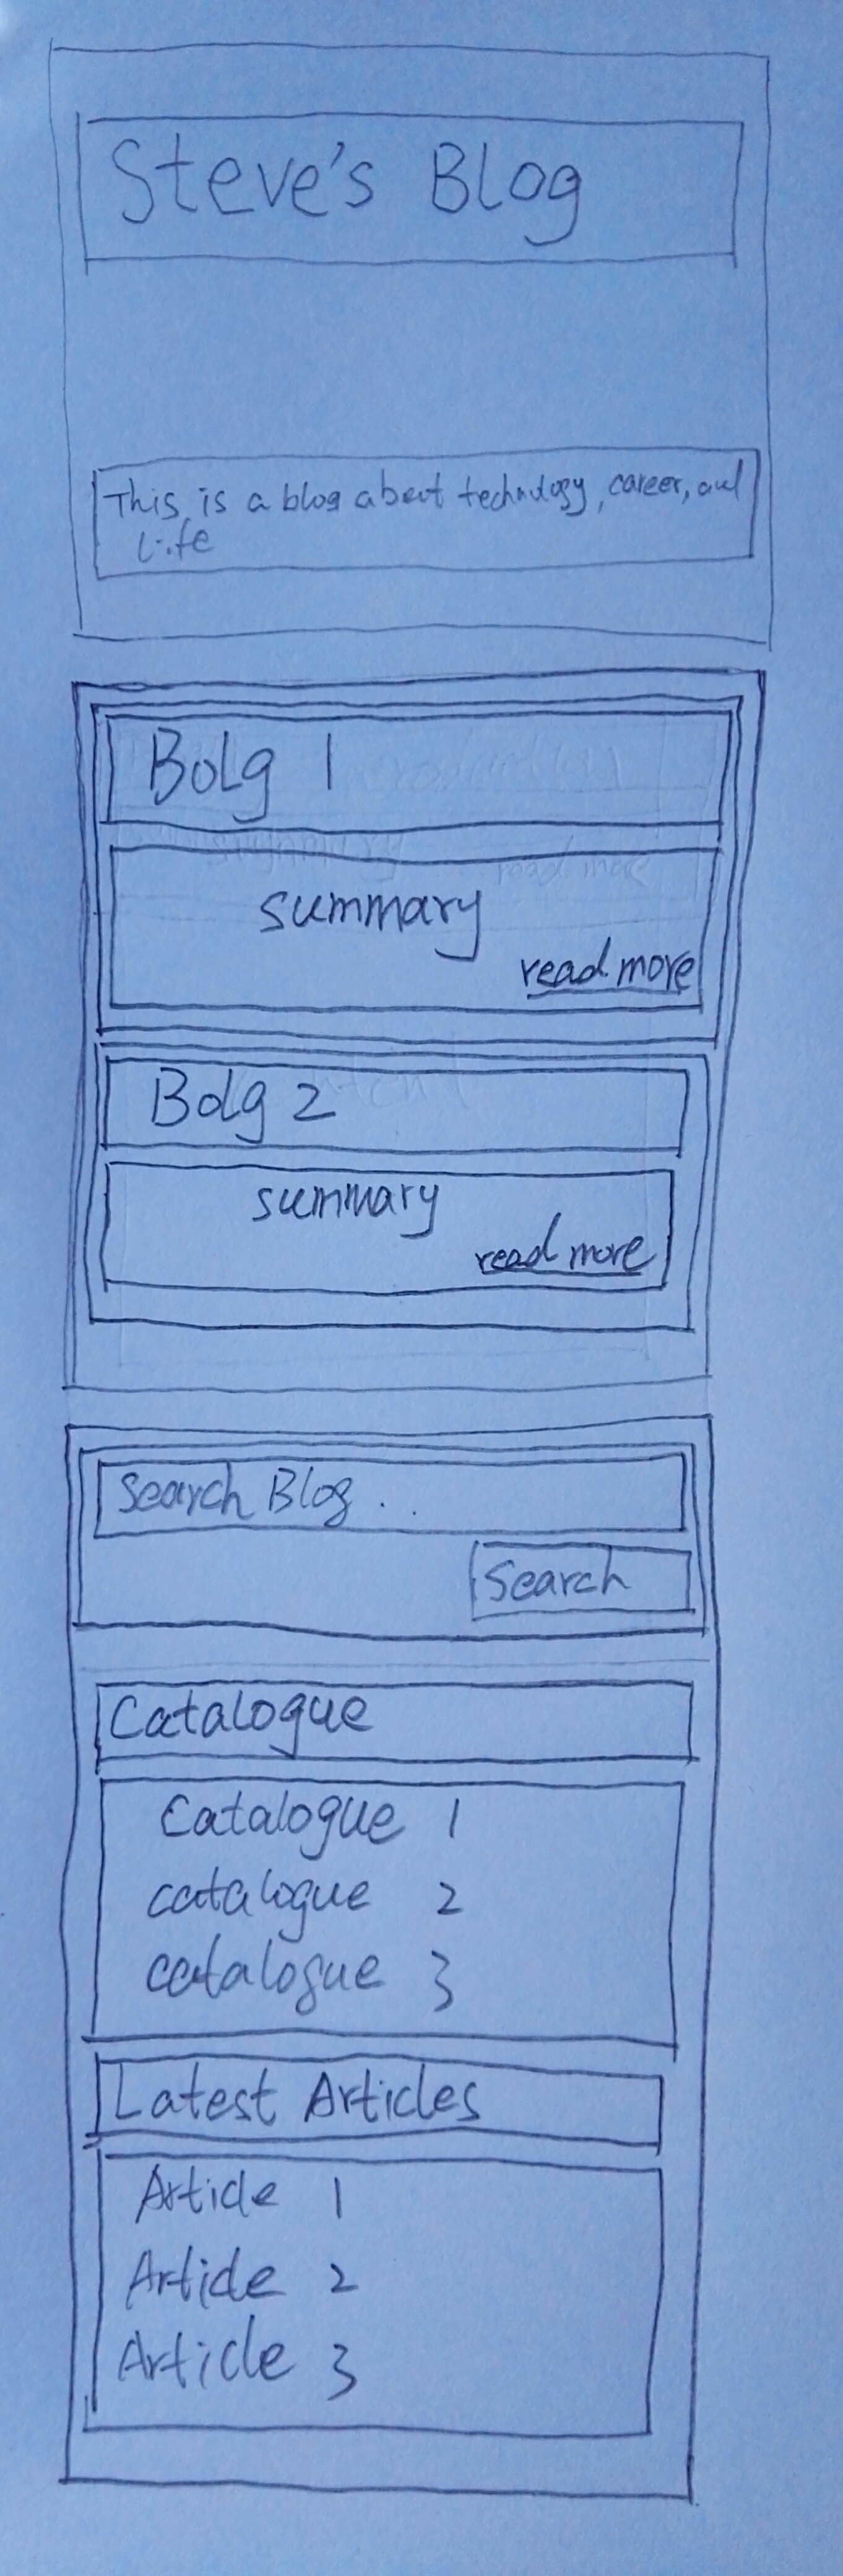 Steve's Blog
This is a blog about technology, career, and
Life
Bolg 1
summary
read more
Bolg 2
summary
read more
Search Blog . .
Search
Catalogue
Catalogue 1
catalogue 2
catalogue 3
Latest Articles
Article 1
Article 2
Article 3